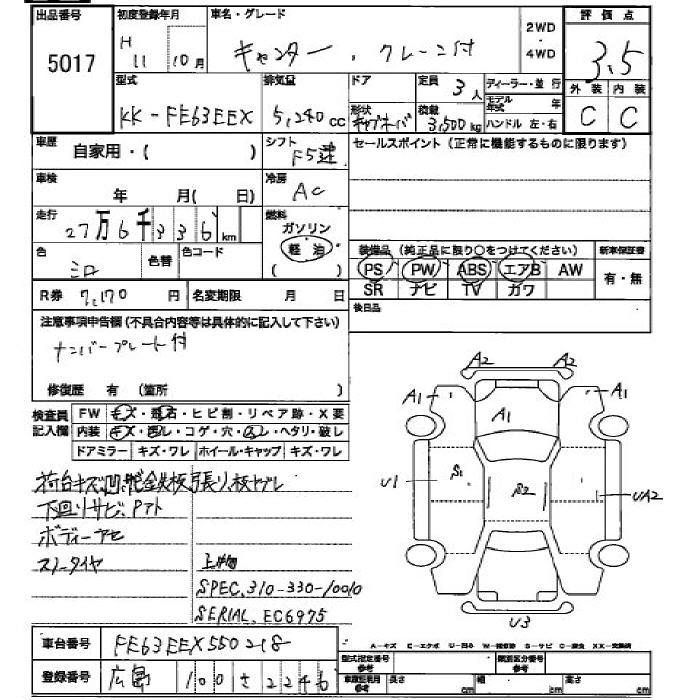 出品番号
5017
初度登録年月
H 11 年 10月
車名・グレード
キャンター、クレーン付
2WD
・
4WD
評価点
3.5
外装 内装
C C
型式
KK-FE63EEX
排気量
5,240 cc
ドア
形状
キャブオーバ
定員 3 人
積載 3,500 kg
ディーラー・並行
モデル年式 年
ハンドル 左・右
車歴
自家用・( )
シフト
F5速
セールスポイント (正常に機能するものに限ります)
車検
年 月( 日)
冷房
AC
走行
27万6千336 km
燃料
ガソリン
軽・油
( )
色
シロ
色替
色コード
装備品 (純正品に限り○をつけてください)
PS PW ABS エアB AW
SR ナビ TV カワ
新車保証書
有・無
R券 7,170 円
名変期限 月 日
後日品
注意事項申告欄(不具合内容等は具体的に記入して下さい)
ナンバープレート付
修復歴 有 (箇所 )
検査員記入欄
FW キズ・飛石・ヒビ割・リペア跡・X要
内装 キズ・汚レ・コゲ・穴・スレ・ヘタリ・破レ
ドアミラー キズ・ワレ ホイール・キャップ キズ・ワレ
荷台キズ凹 鉄板張り、板ヤブレ
下回りサビ、Pアト
ボディーアセ
スノータイヤ
上物
SPEC.310-330-10010
SERIAL.EC6975
A2 A2
A1 A1
A1
U1 S1 S2 UA2
U3
車台番号 FE63EEX550218
登録番号 広島 100 さ 2246
A-キズ E-エクボ U-凹み W-補修跡 S-サビ C-腐食 XX-交換済
型式指定番号 参考
類別区分番号 参考
車庫証明用参考 長さ cm 幅 cm 高さ cm